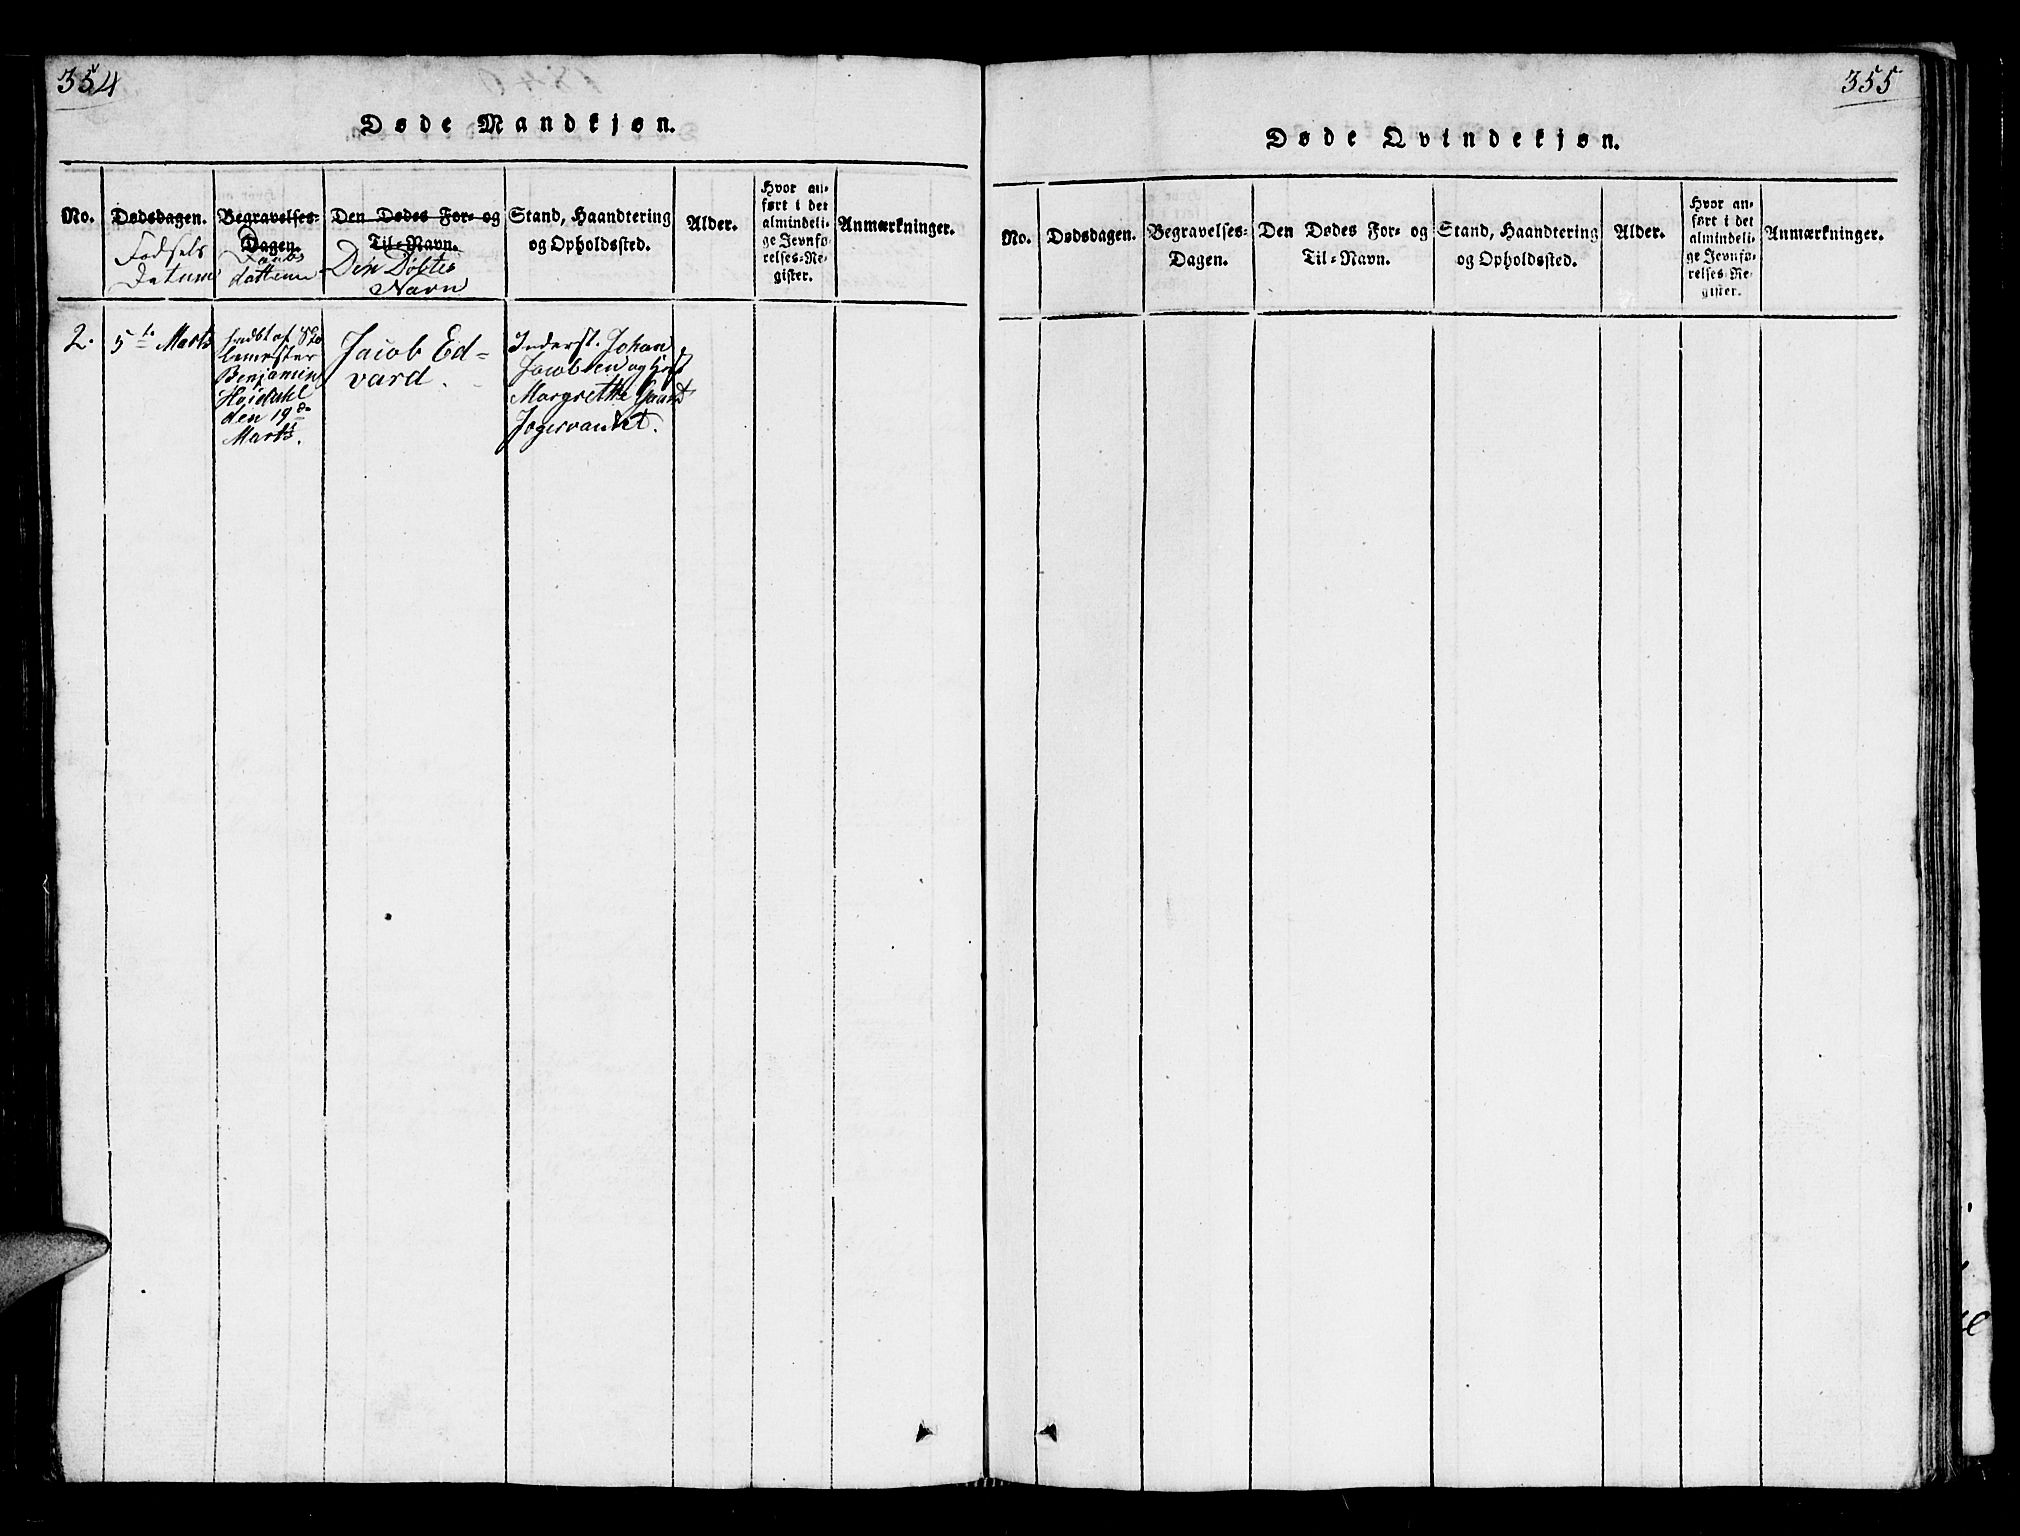 354
Døde Mandkjøn.
No.
Dødsdagen.
Fødsels
Datum
Begravelses-
Dagen.
Daabs
dattum
Den Dødes For- og
Til-Navn.
Den Døbtes
Navn
Stand, Haandtering
og Opholdssted.
Alder.
Hvor an-
ført i det
almindeli-
ge Jevnfø-
relses-Re-
gister.
Anmærkninger.
2.
5te Marts
døbt af Sko
lemester
Benjamin
Høidahl
den 19de
Marts.
Jacob Ed-
vard.
Inderst. Johan
Jacobsen og
Margrethe
355
Døde Qvindekjøn.
No.
Dødsdagen.
Begravelses-
Dagen.
Den Dødes For- og
Til-Navn.
Stand, Haandtering
og Opholdssted.
Alder.
Hvor an-
ført i det
almindeli-
ge Jevnfø-
relses-Re-
gister.
Anmærkninger.